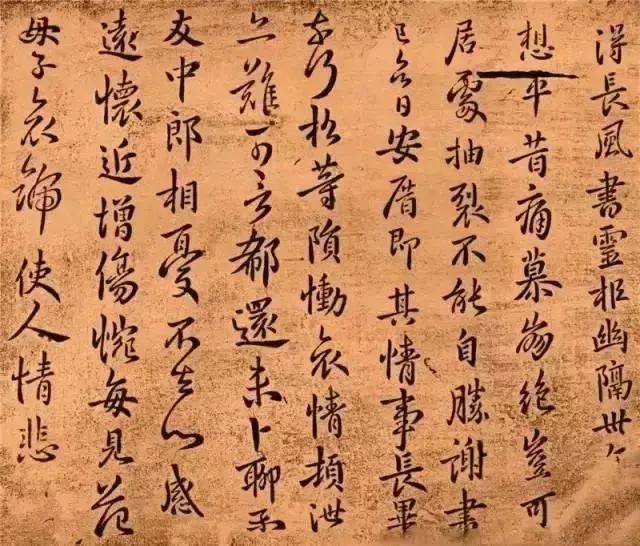 得長風書靈柩幽隔卅
想平昔痛慕崩絕豈可
居處抽裂不能自勝謝書
已日安厝即其情事長畢
奈何松等隕慟哀情頓泄
亦難可言郗還未卜聊示
友中郎相憂不去心感
遠懷近增傷惋每見范
母子哀號使人情悲